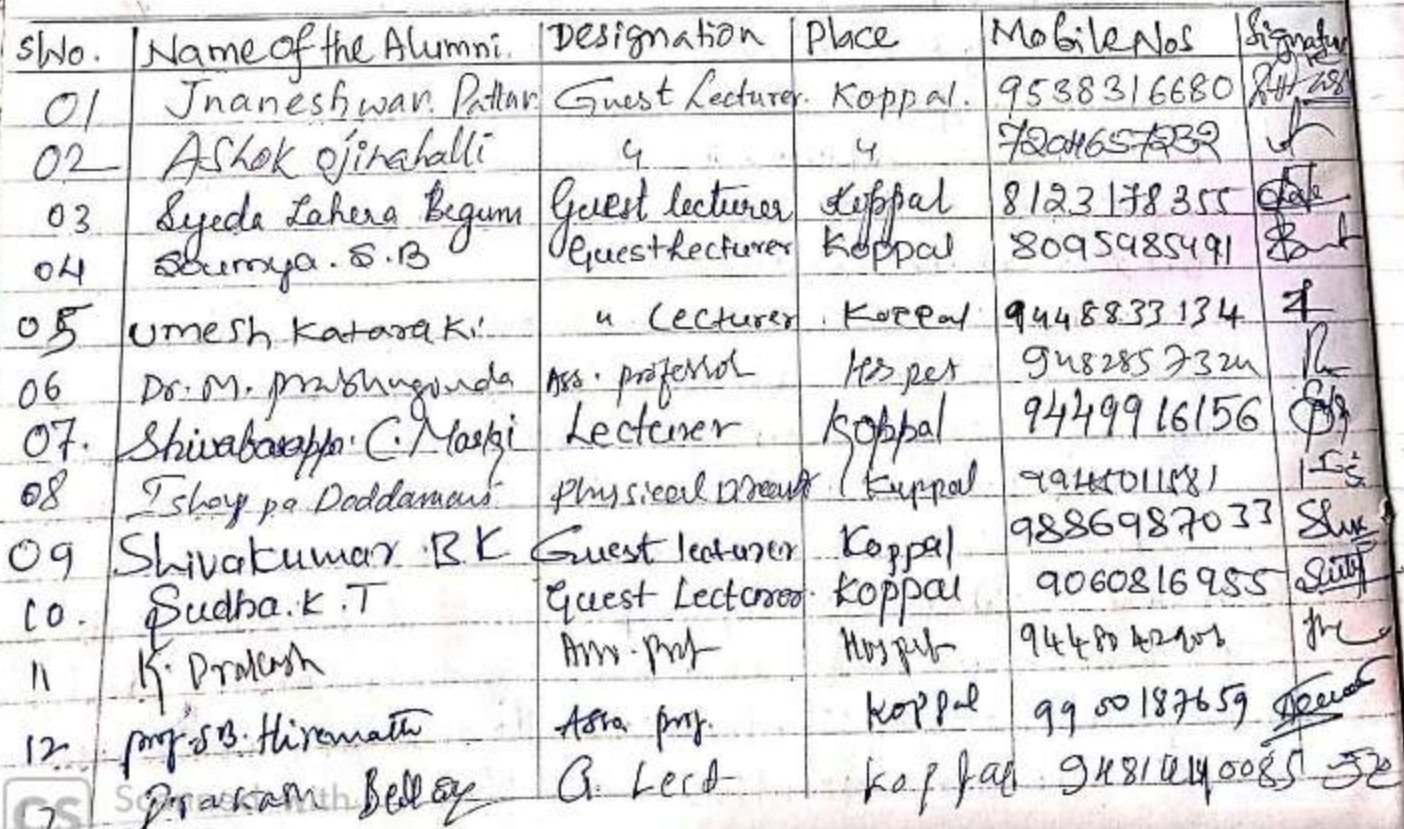 SlNo. Name of the Alumni. Designation Place Mobile Nos Signature
01 Jnaneshwar. Pattar Guest Lecturer. Koppal. 9538316680
02 Ashok ojinahalli " " 7204657232
03 Syeda Lahera Begum Guest lecturer Koppal 8123178355
04 Soumya. S.B Guest Lecturer Koppal 8095985491
05 Umesh Kataraki " Lecturer Koppal 9448833134
06 Dr. M. Prabhugouda Ass. professor Hospet
07. Shivabasappa C. Maski Lecturer Koppal 9449916156
08 Doddamani Physical Koppal
09 Shivakumar B K Guest lecturer Koppal 9886987033
10. Sudha. K. T Guest Lecturer. Koppal 9060816955
11 K. Prakash Asso. Prof Hospet
12. prof. S.B. Hiremath Asso. prof. Koppal
G. Lect Koppal
CS Scanned with